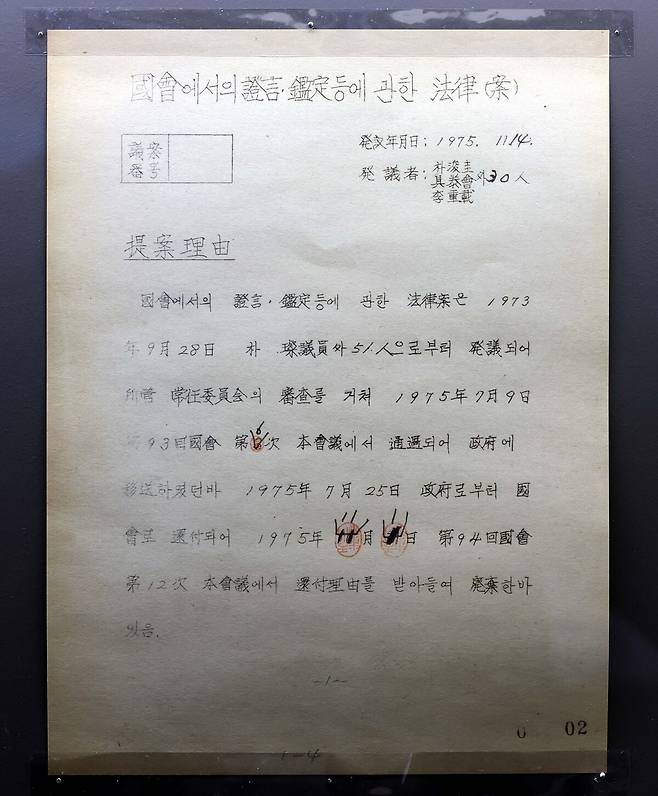 國會에서의 證言·鑑定등에 관한 法律(案)
議案
番号
発議年月日: 1975. 11. 14.
発議者: 朴浚圭
具泰會 外 30人
李重載
提案理由
國會에서의 證言·鑑定등에 관한 法律案은 1973
年 9月 28日 朴 璨議員外 51人으로부터 発議되어
所管 常任委員会의 審査를 거쳐 1975年 7月 9日
第93回國會 第6次 本會議에서 通過되어 政府에
移送하였던바 1975年 7月 25日 政府로부터 國
會로 還付되어 1975年 11月 11日 第94回國會
第12次 本會議에서 還付理由를 받아들여 廃棄한바
있음.
-1-
02
1-4